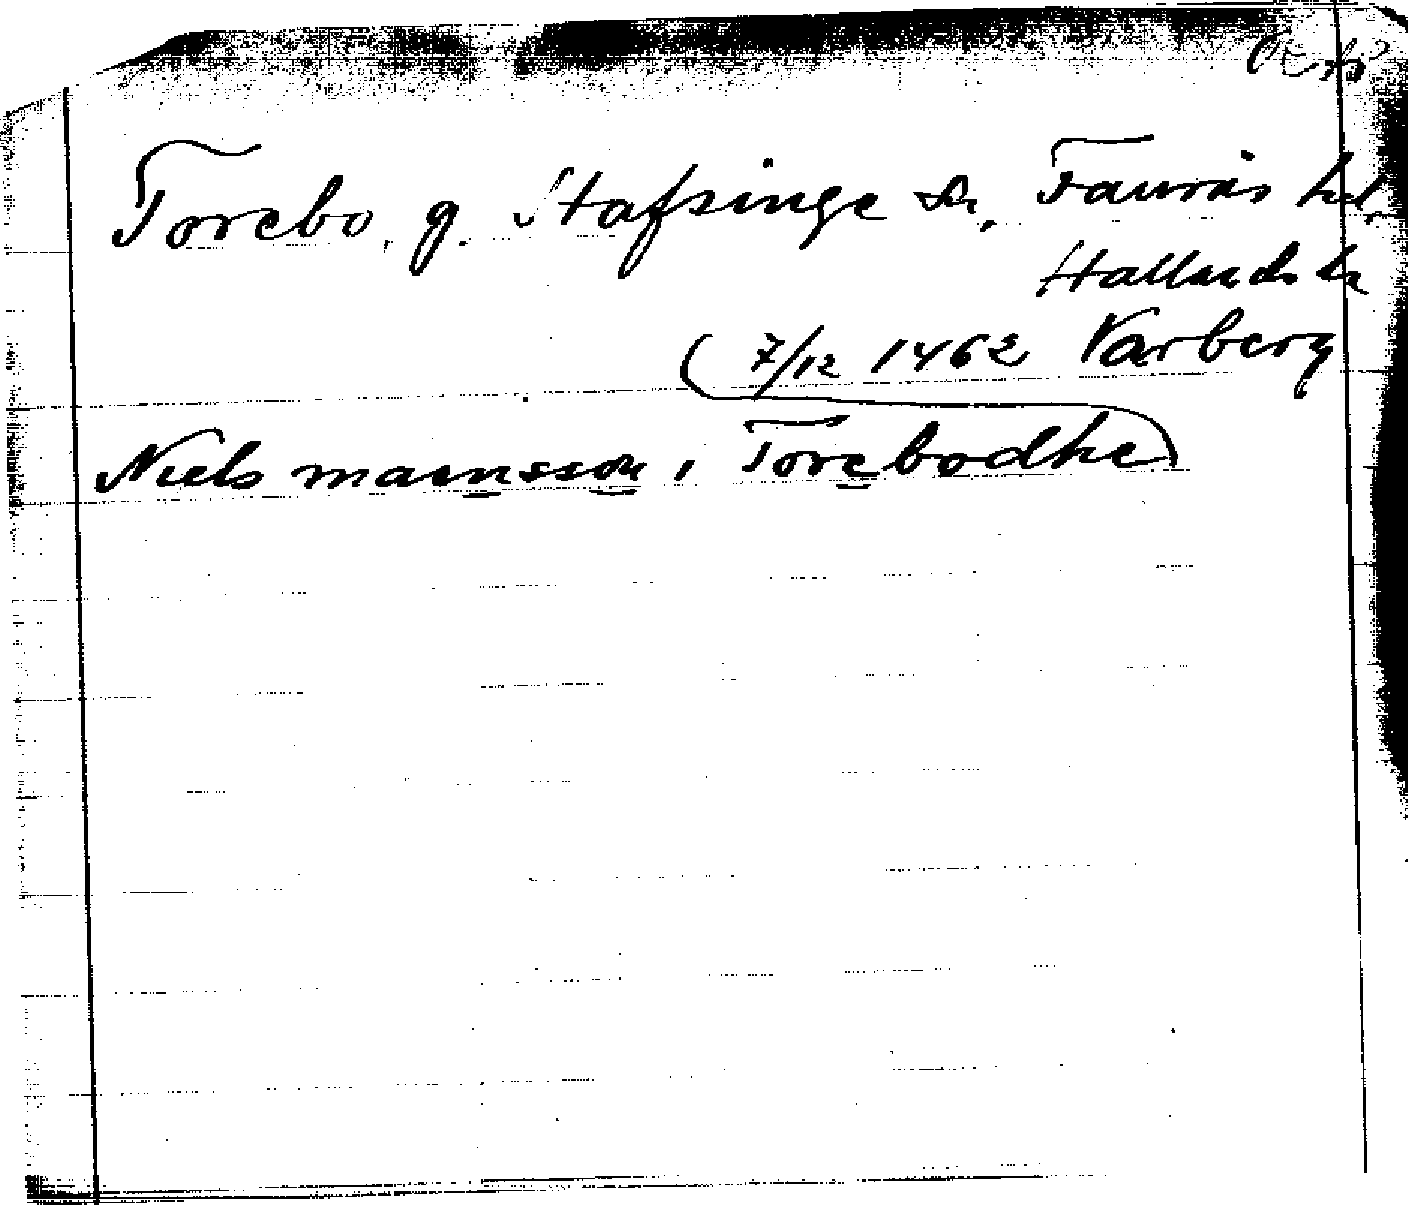 Torebo, g. Stafsinge sn, Faurås hd.
Hallands ln
(7/12 1462 Varberg
Niels maensson i Torebodhe)